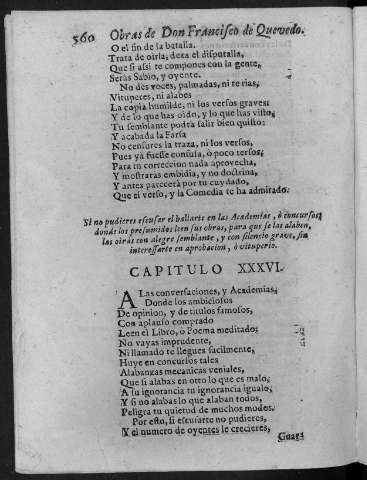 560 Obras de Don Francisco de Quevedo.
O el fin de la batalla.
Trata de oirla, dexa el disputalla,
Que si assi te compones con la gente,
Seràs Sabio, y oyente.
No des voces, palmadas, ni te rias,
Vituperes, ni alabes
La copia humilde, ni los versos graves:
Y de lo que has oido, y lo que has visto,
Tu semblante podrà salir bien quisto:
Y acabada la Farsa
No censures la traza, ni los versos,
Pues yà fuesse confusa, ò poco tersos,
Para tu correccion nada aprovecha,
Y mostraràs embidia, y no doctrina,
Y antes parecerà por tu cuydado,
Que el verso, y la Comedia te ha admirado.
Si no pudieres escusar el hallarte en las Academias, ò concursos,
donde los presumidos leen sus obras, para que se las alaben,
las oiràs con alegre semblante, y con silencio grave, sin
interessarte en aprobacion, ò vituperio.
CAPITULO XXXVI.
A Las conversaciones, y Academias,
Donde los ambiciosos
De opinion, y de titulos famosos,
Con aplauso comprado
Leen el Libro, o Poema meditado:
No vayas imprudente,
Ni llamado te llegues facilmente,
Huye en concursos tales
Alabanzas mecanicas veniales,
Que si alabas en otro lo que es malo,
A su ignorancia tu ignorancia igualo,
Y si no alabas lo que alaban todos,
Peligra tu quietud de muchos modos.
Por esto, si escusarte no pudieres,
Y el numero de oyentes le crecieres,
Guar-